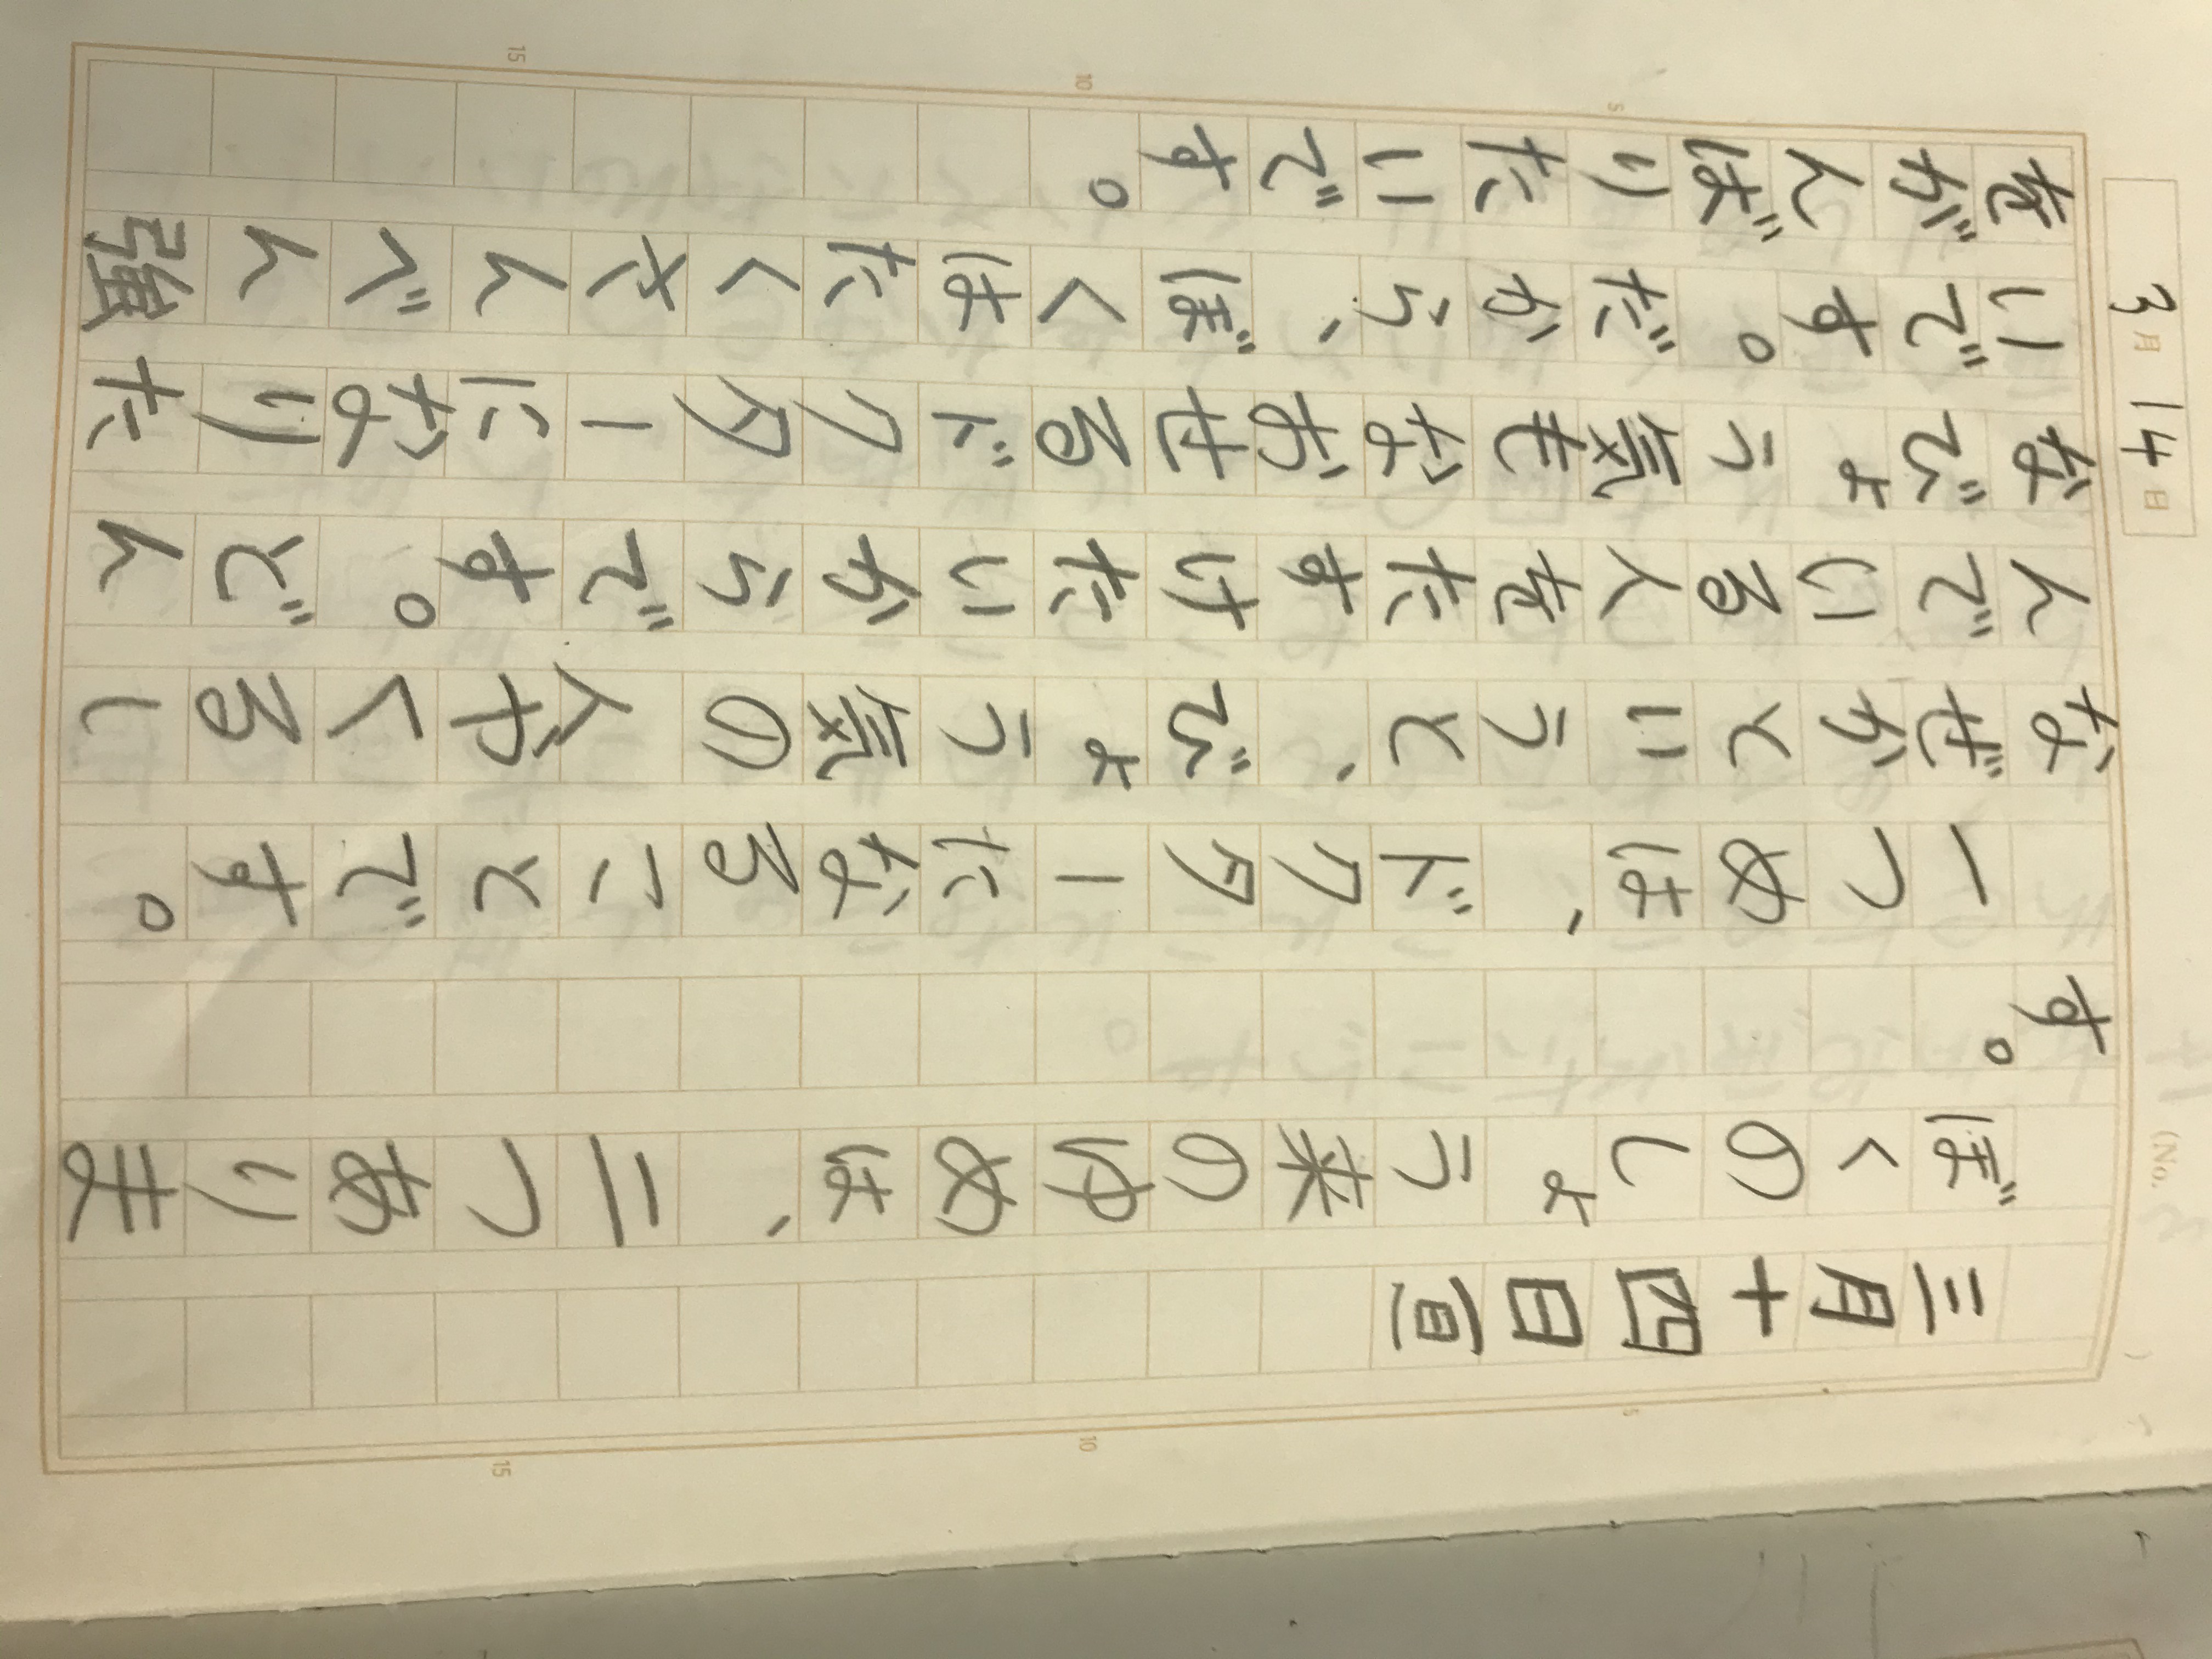 3月14日
三月十四日(日)
ぼくのしょう来のゆめは、二つありま
す。
一つめは、ドクターになることです。
なぜかというと、びょう気の人がくるし
んでいる人をたすけたいからです。どん
なびょう気もなおせるドクターになりた
いです。だから、ぼくはたくさんべん強
をがんばりたいです。
5
10
15
5
10
15
(No.